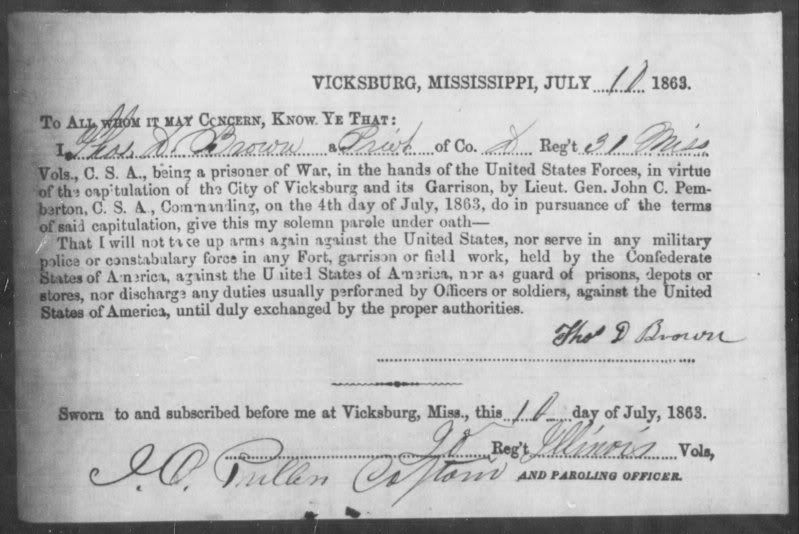 VICKSBURG, MISSISSIPPI, JULY 10 1863.
TO ALL WHOM IT MAY CONCERN, KNOW YE THAT:
I, Thos. D. Brown a Privt of Co. D Reg't 31 Miss
Vols., C. S. A., being a prisoner of War, in the hands of the United States Forces, in virtue
of the capitulation of the City of Vicksburg and its Garrison, by Lieut. Gen. John C. Pem-
berton, C. S. A., Commanding, on the 4th day of July, 1863, do in pursuance of the terms
of said capitulation, give this my solemn parole under oath—
That I will not take up arms again against the United States, nor serve in any military
police or constabulary force in any Fort, garrison or field work, held by the Confederate
States of America, against the United States of America, nor as guard of prisons, depots or
stores, nor discharge any duties usually performed by Officers or soldiers, against the United
States of America, until duly exchanged by the proper authorities.
Thos D Brown
Sworn to and subscribed before me at Vicksburg, Miss., this 10 day of July, 1863.
Reg't Illinois Vols,
J. O. Pullen Captain AND PAROLING OFFICER.